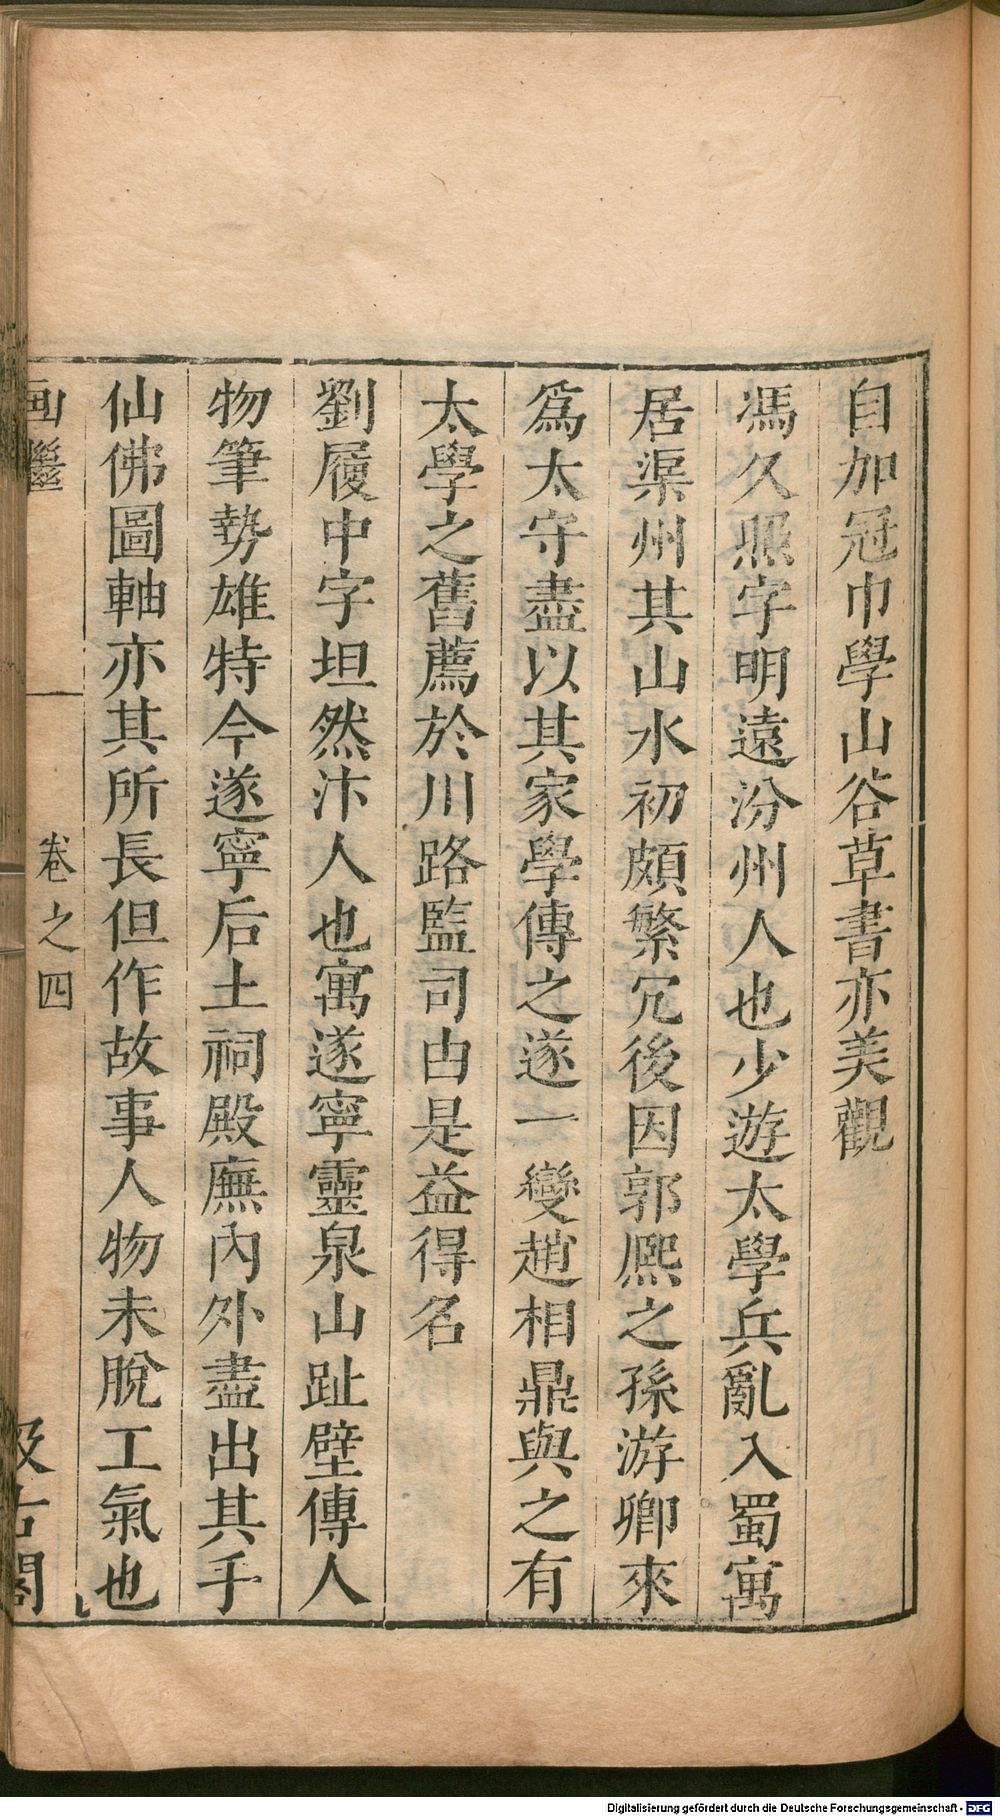 自加冠巾學山谷草書亦美觀
馮久照字明遠汾州人也少遊太學兵亂入蜀寓
居渠州其山水初頗繁冗後因郭熈之孫游卿來
爲太守盡以其家學傳之遂一變趙相鼎與之有
太學之舊薦於川路監司由是益得名
劉履中字坦然汴人也寓遂寧靈泉山趾壁傳人
物筆勢雄特今遂寧后土祠殿廡內外盡出其手
仙佛圖軸亦其所長但作故事人物未脫工氣也
画繼
卷之四
汲古閣
Digitalisierung gefördert durch die Deutsche Forschungsgemeinschaft - DFG